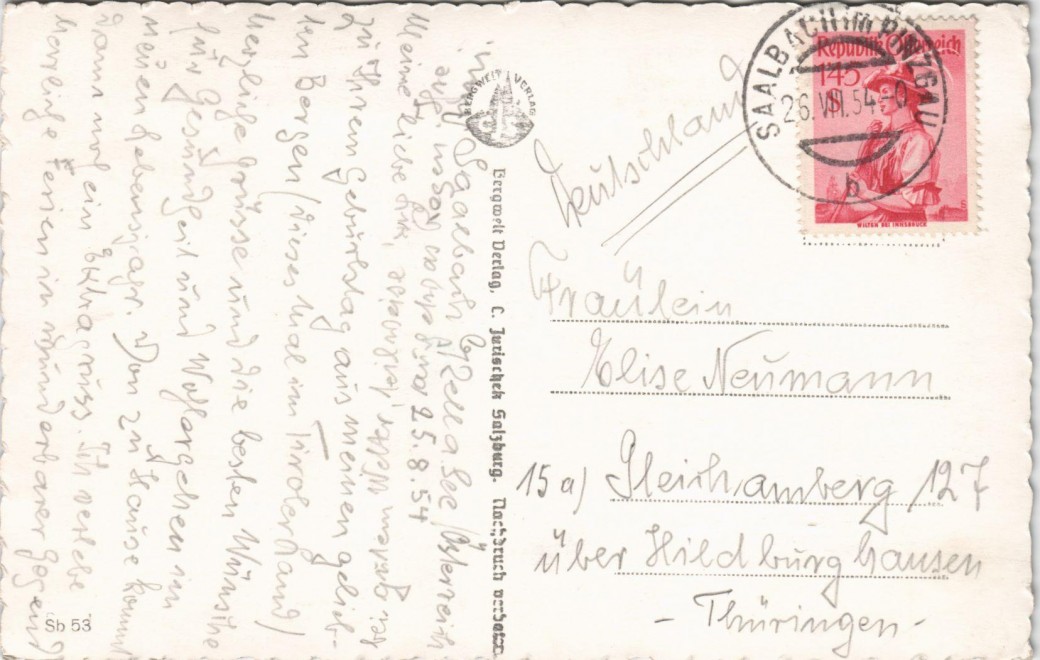 z. Zt. Saalbach b/Zell a. See / Österreich
25.8.54
Meine liebe
zu Ihrem Geburtstag aus meinen gelieb-
ten Bergen (dieses Mal im Tirolerland)
herzliche Grüsse und die besten Wünsche
für Gesundheit und Wohlergehen im
neuen Lebensjahr. Von zu Hause kommt
dann noch ein Extragruss. Ich verlebe
herrliche Ferien in wunderbarer Gegend
Sb 53
BERGWELT VERLAG
Bergwelt Verlag, C. Jurischek Salzburg. Nachdruck verboten
Republik Österreich
1·45
S
WILTEN BEI INNSBRUCK
SAALBACH im PINZGAU
26.VIII.54
b
Deutschland
Fräulein
Elise Neumann
15a) Gleichamberg 127
über Hildburghausen
- Thüringen -